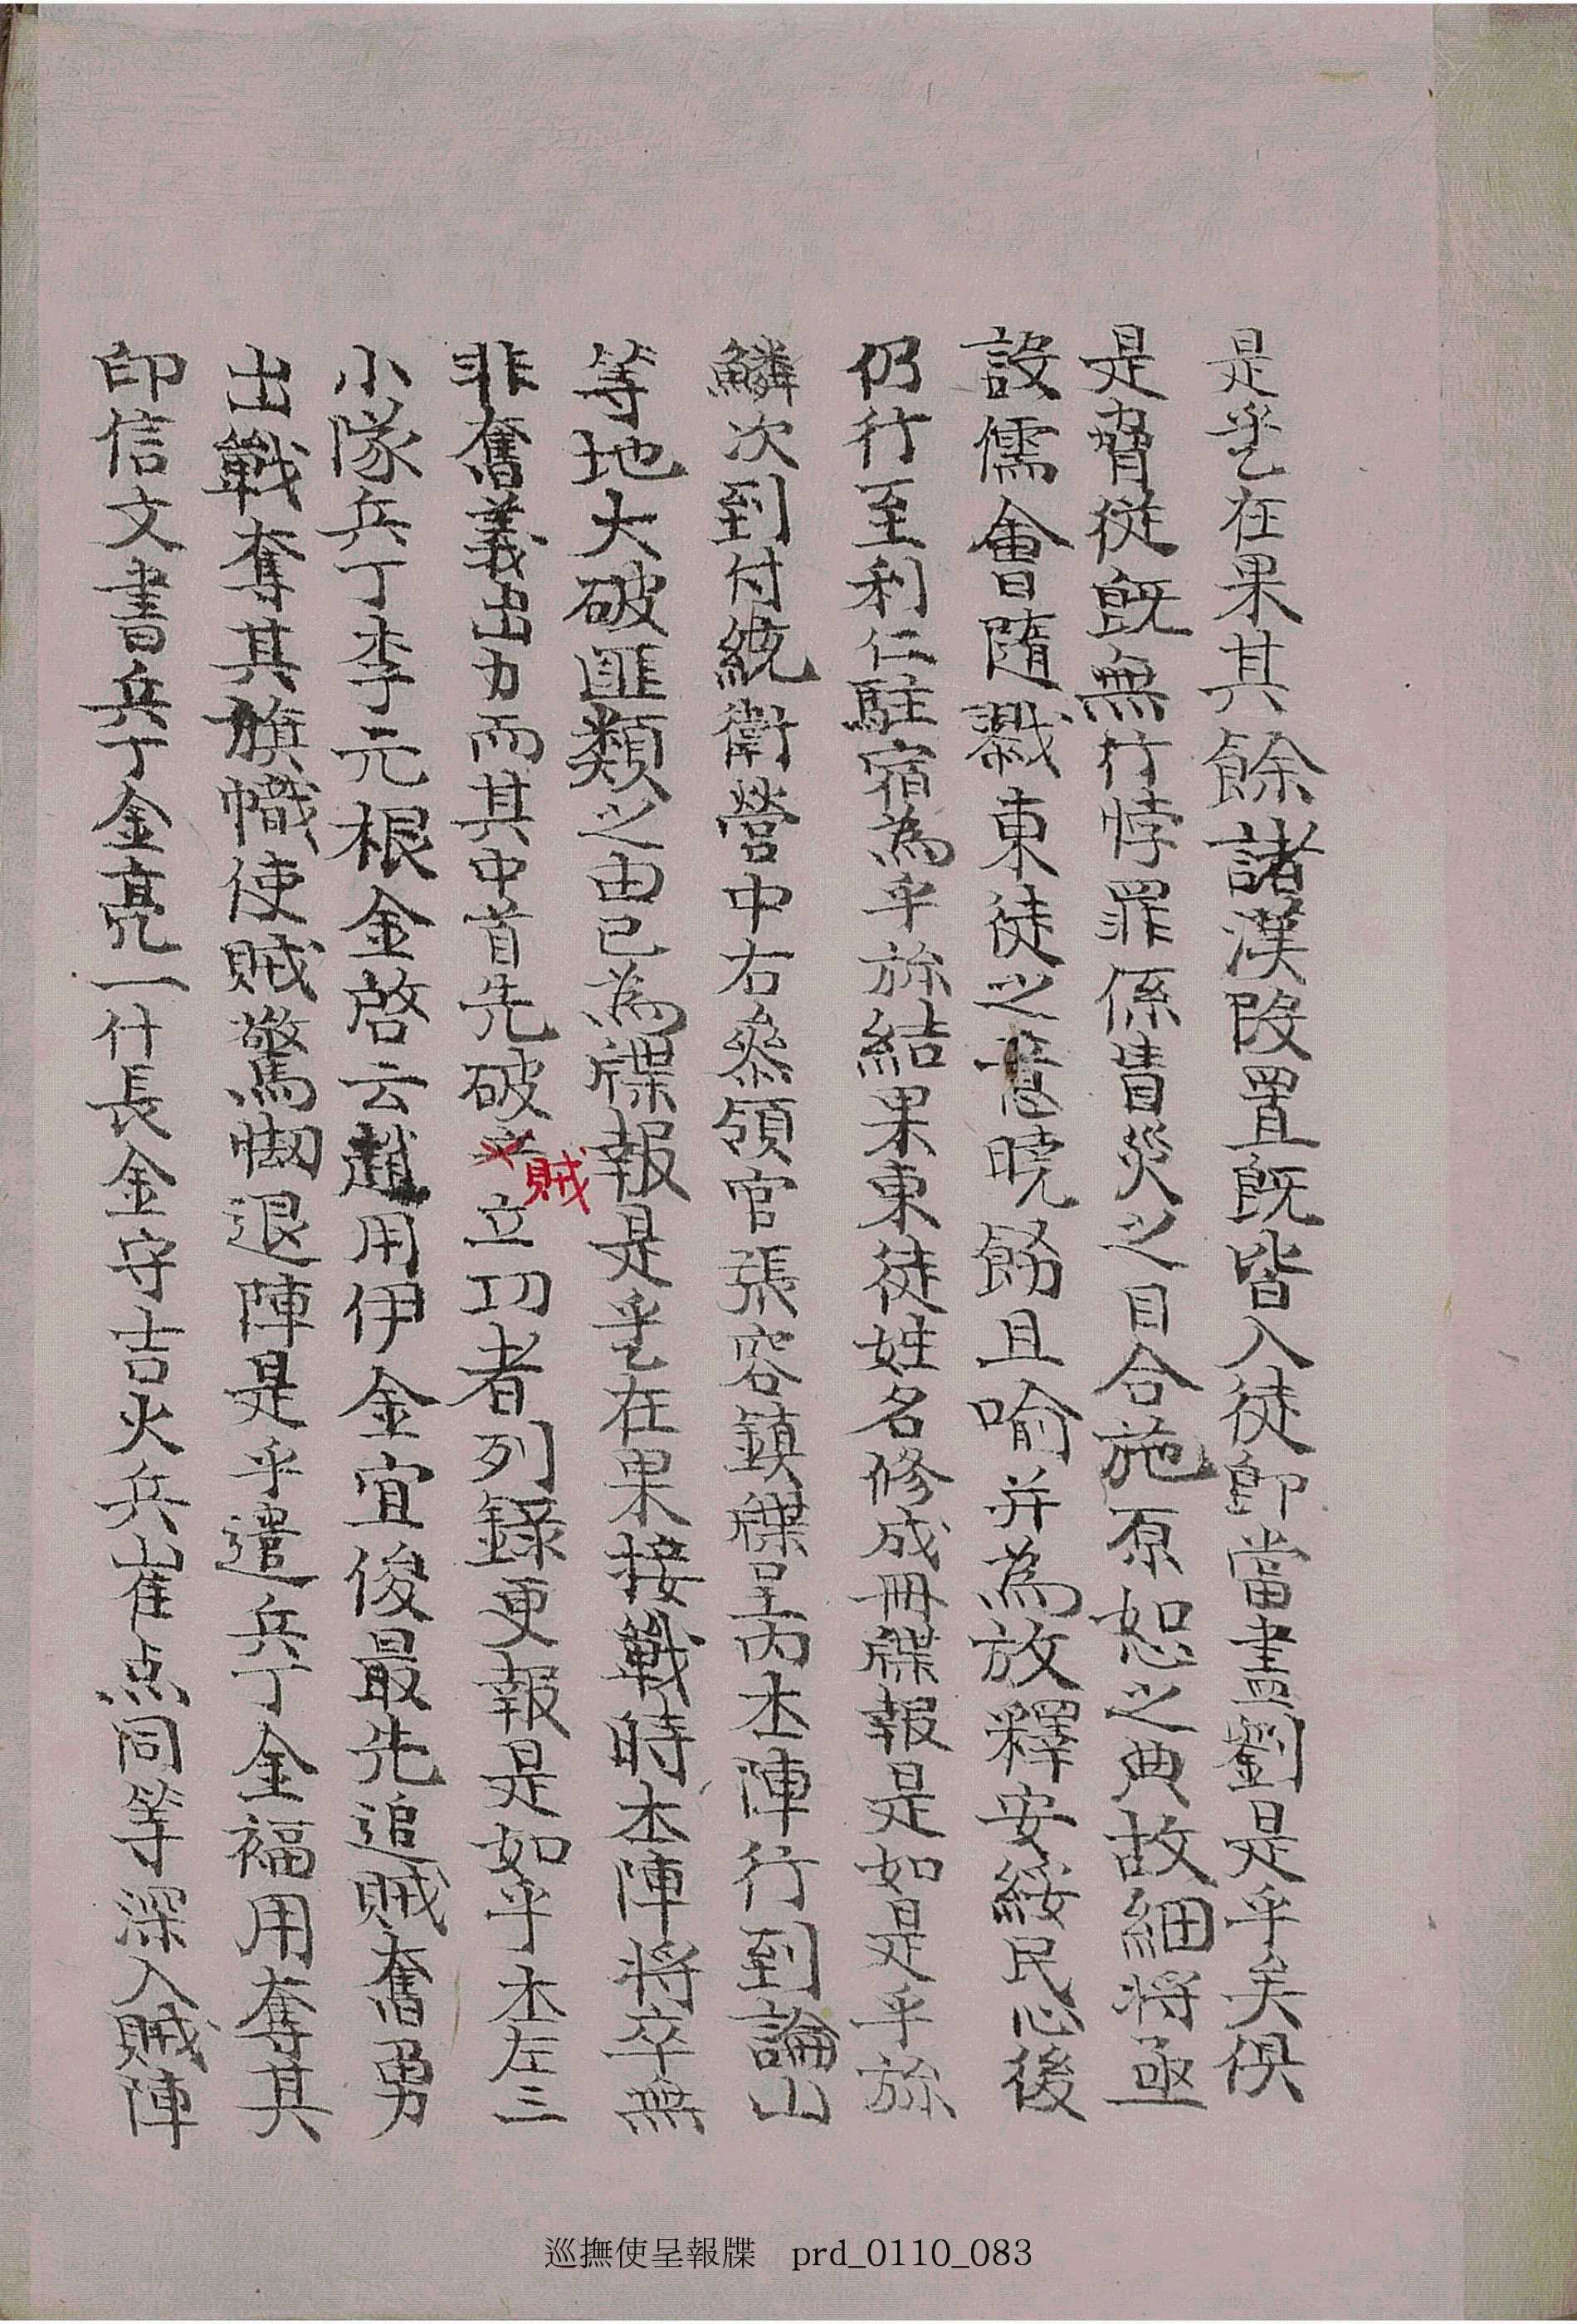 是乎乙在果其餘諸漢段置既皆入徒卽當盡劉是乎矣俱
是脅從既無行悖罪係眚災之目合施原恕之典故細將亟
設儒會隨戮東徒之意曉飭且喻并為放釋安綏民心後
仍行至利仁駐宿為乎旀結果東徒姓名修成冊牒報是如是乎旀
鱗次到付統衛營中右叅領官張容鎮牒呈內本陣行到論山
等地大破匪類之由已為牒報是乎乙在果接戰時本陣將卒無
非奮義出力而其中首先破賊立功者列錄更報是如乎本左三
小隊兵丁李元根金啓云趙用伊金宜俊最先追賊奮勇
出戰奪其旗幟使賊驚㤼退陣是乎遣兵丁金福用奪其
印信文書兵丁金亮一什長金守吉火兵崔点同等深入賊陣
巡撫使呈報牒　prd_0110_083